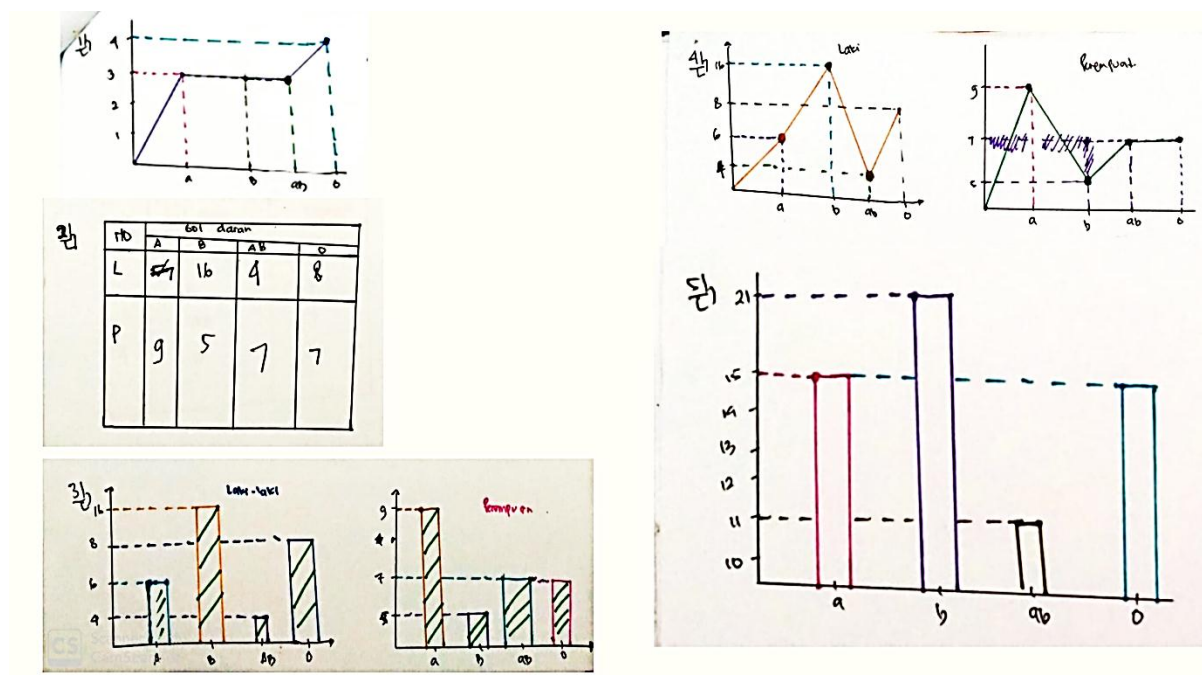 1)
4
3
2
1
a B ab O
2)
no Gol darah
A B AB O
L 16 4 8
P 9 5 7 7
3)
16 Laki-laki
8
6
4
A B AB O
9 Perempuan
7
5
a B ab O
4)
16 Laki
8
6
4
a b ab O
9 Perempuan
7
5
a b ab O
5)
21
15
14
13
12
11
10
a b ab O
CS